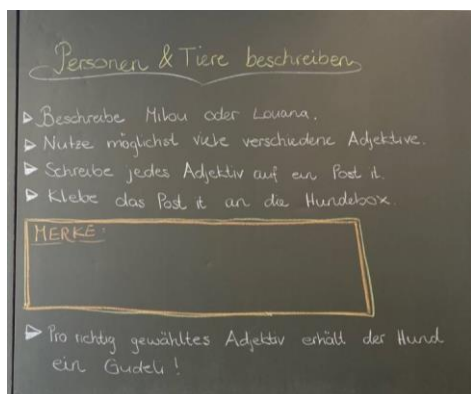 Personen & Tiere beschreiben
Beschreibe Milou oder Louana.
Nutze möglichst viele verschiedene Adjektive.
Schreibe jedes Adjektiv auf ein Post it.
Klebe das Post it an die Hundebox.
MERKE:
Pro richtig gewähltes Adjektiv erhält der Hund
ein Gudeli!